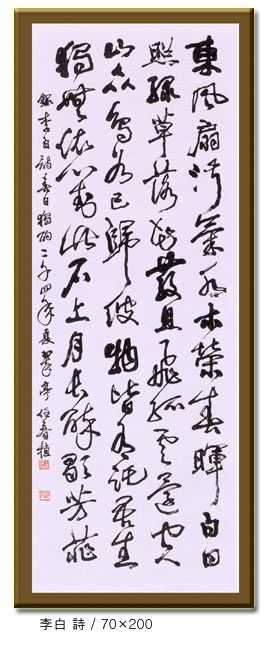 東風扇淑氣水木榮春暉白日
照綠草落花散且飛孤雲還空
山衆鳥各已歸彼物皆有託吾生
獨無依對此石上月長醉歌芳菲
錄李白詩春日獨酌二千四年夏翠亭任春植
李白 詩 / 70×200